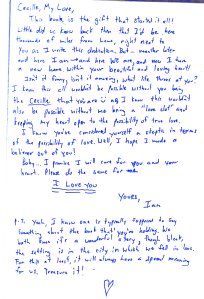 Cecille, My Love,
This book is the gift that started it all!
Little did we know back then that I'd be here
thousands of miles from home, right next to
you as I write this dedication. But... months later
and here I am and here we are, and now I have
a new home within your beautiful and loving heart!
Isn't it funny, isn't it amazing, what life throws at you?
I know this all wouldn't be possible without you being
the Cecille that you are and I know this wouldn't
also be possible without me being a "love" and
keeping my heart open to the possibility of true love.
I know you've considered yourself a skeptic in terms
of the possibility of love. Well, I hope I made a
believer out of you!
Baby... I promise I will care for you and your
heart. Please do the same for me.
I Love You
Yours,
Ian
P.S. Yeah, I know one is typically supposed to say
something about the book that you're holding. We
both know it's a wonderful story, though bleak,
the setting is in the city in which we fell in love.
For this at least, it will always have a special meaning
for us. Treasure it!